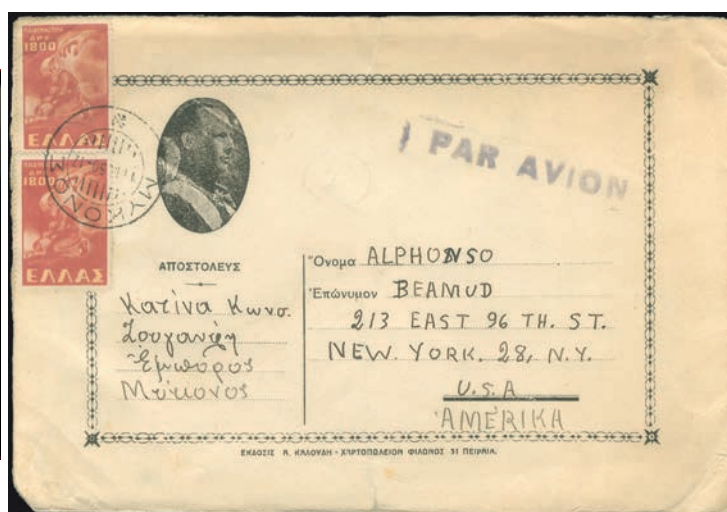 ΔΡΧ
1800
ΕΛΛΑΣ
ΔΡΧ
1800
ΕΛΛΑΣ
ΜΥΚΟΝΟΣ
PAR AVION
ΑΠΟΣΤΟΛΕΥΣ
Κατίνα Κωνσ.
Ζουγανέλη
Έμπορος
Μύκονος
Ὄνομα ALPHONSO
Ἐπώνυμον BEAMUD
213 EAST 96 TH. ST.
NEW. YORK. 28, N.Y.
U.S.A
AMÉRIKA
ΕΚΔΟΣΙΣ Α. ΚΑΛΟΥΔΗ - ΧΑΡΤΟΠΩΛΕΙΟΝ ΦΙΛΩΝΟΣ 31 ΠΕΙΡΑΙΑ.